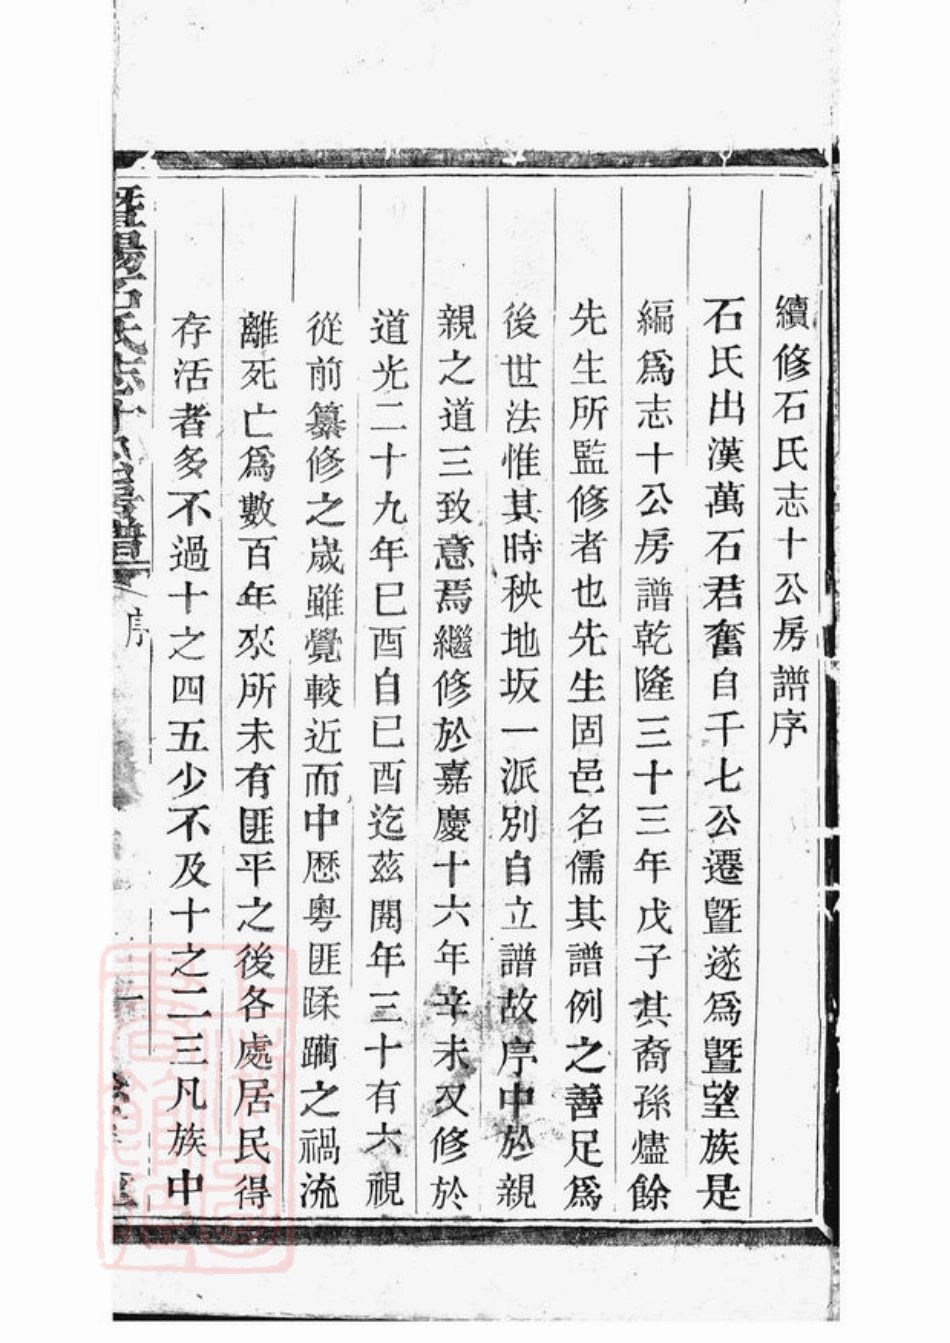 續修石氏志十公房譜序
石氏出漢萬石君奮自千七公遷暨遂爲暨望族是
編爲志十公房譜乾隆三十三年戊子其裔孫燼餘
先生所監修者也先生固邑名儒其譜例之善足爲
後世法惟其時秧地坂一派別自立譜故序中於親
親之道三致意焉繼修於嘉慶十六年辛未又修於
道光二十九年巳酉自巳酉迄茲閱年三十有六視
從前纂修之歲雖覺較近而中歷粵匪蹂躪之禍流
離死亡爲數百年來所未有匪平之後各處居民得
存活者多不過十之四五少不及十之二三凡族中
暨陽石氏志十公房譜
序
一